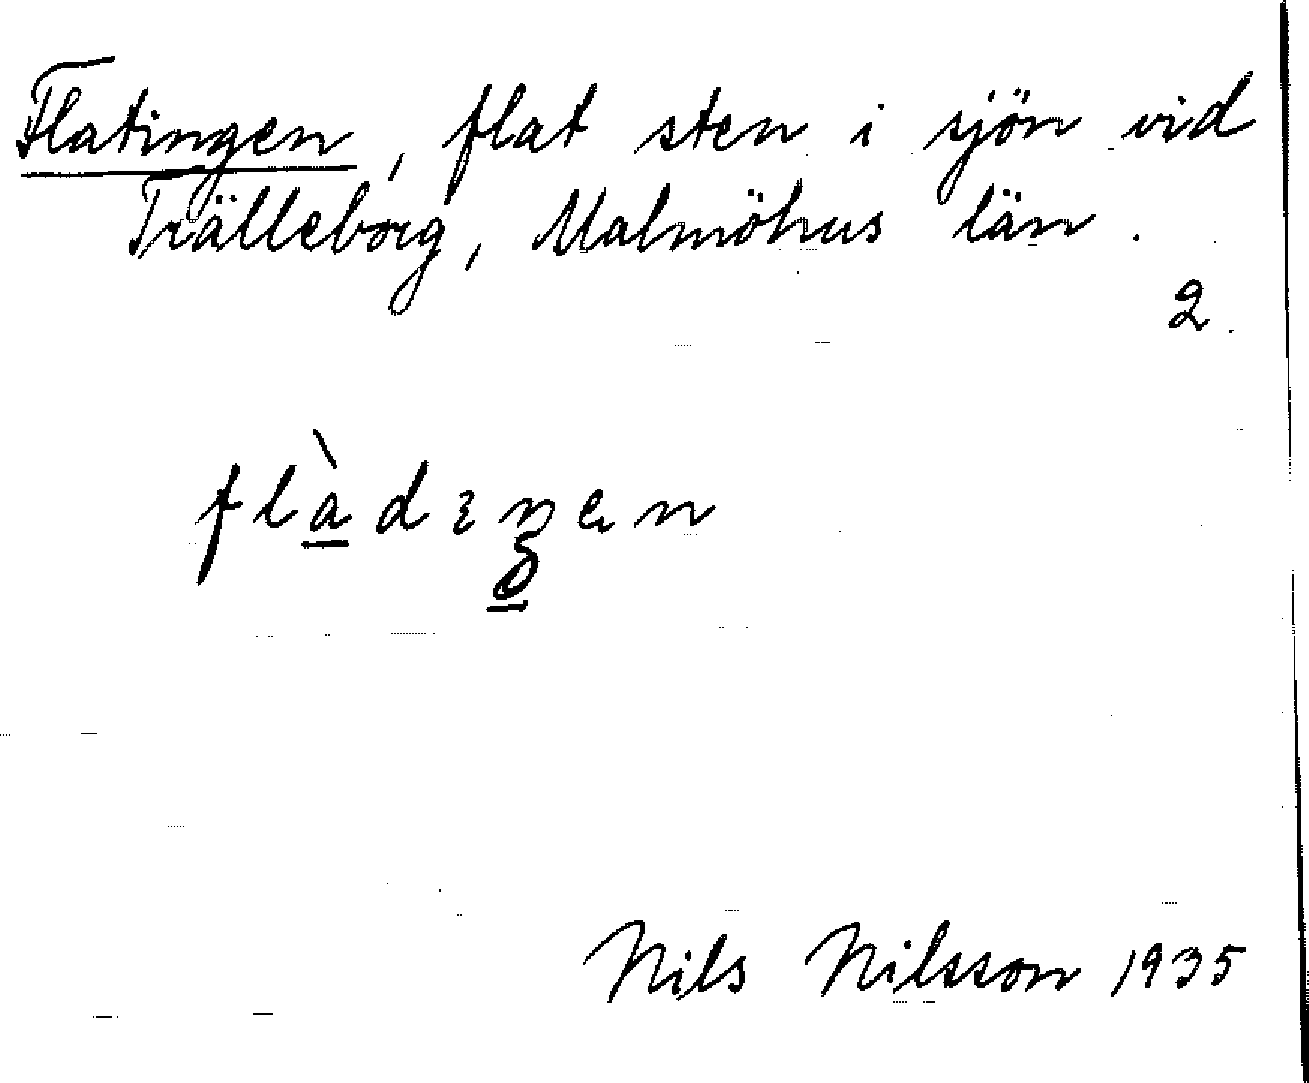 Flatingen, flat sten i sjön vid
Trälleborg, Malmöhus län.
2.
Nils Nilsson 1935